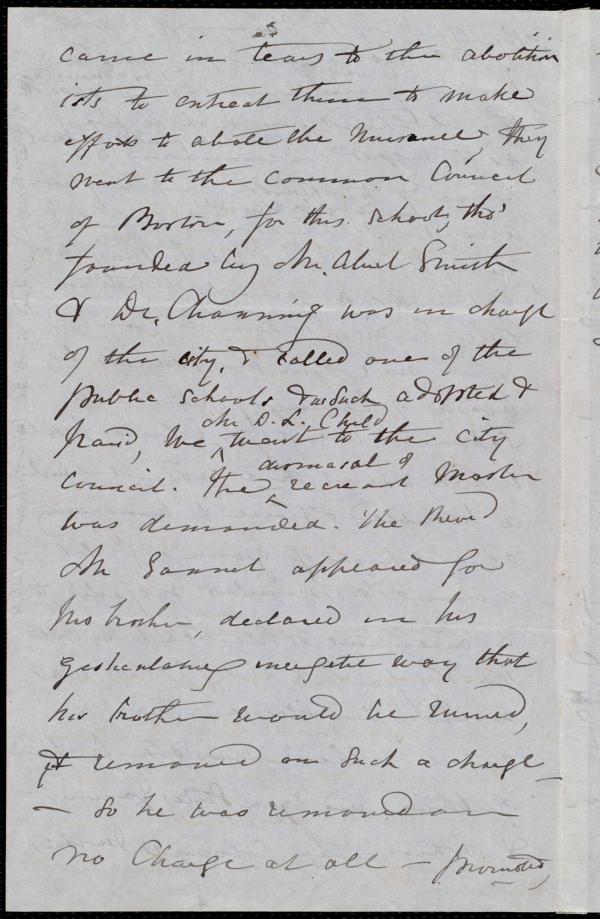 came in tears to the abolition
ists to entreat them to make
efforts to abate the nuisance, they
went to the common Council
of Boston, for this School, tho'
founded by Mr. Abiel Smith
& Dr. Channing was in charge
of the city, & called one of the
public schools & as such adopted &
paid, We Mr D. L. Child went to the city
Council. The dismissal of recreant Master
was demanded. The Revd
Mr Gannet appeared for
his brother, declared in his
gesticulating energetic way that
his brother would be ruined,
if removed on such a charge -
- so he was removed on
no Charge at all - promoted,